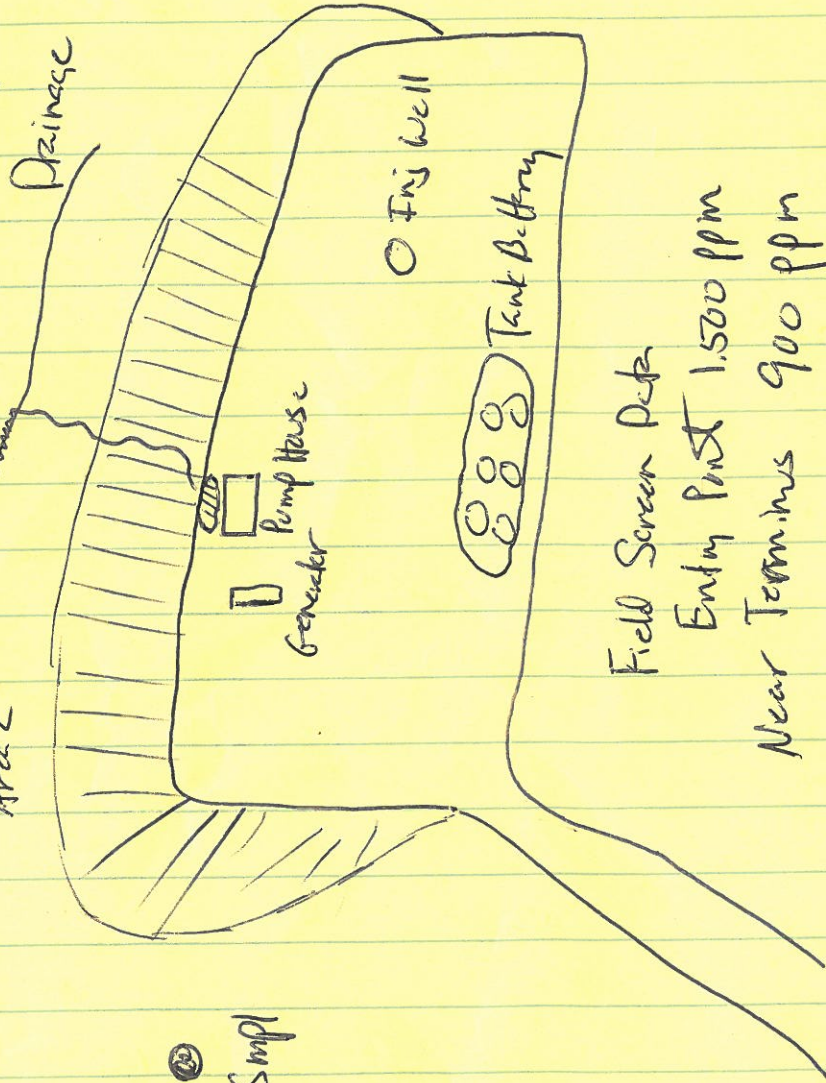 Drainage
Area 2
Inj Well
Tank Battery
Pump House
Generator
Smpl
Field Screen Data
Entry Point 1,500 ppm
Near Terminus 900 ppm